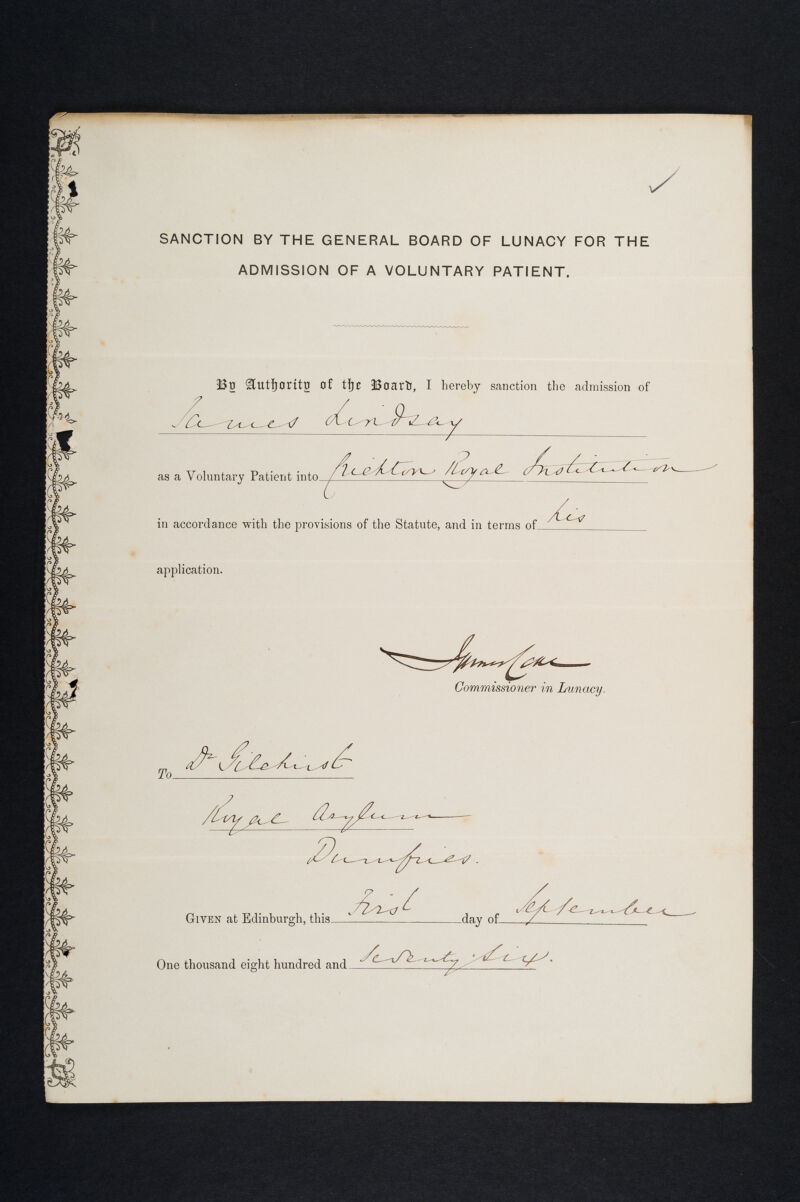 SANCTION BY THE GENERAL BOARD OF LUNACY FOR THE
ADMISSION OF A VOLUNTARY PATIENT.
By Authority of the Board, I hereby sanction the admission of
James Lindsay
as a Voluntary Patient into Crichton Royal Institution
in accordance with the provisions of the Statute, and in terms of his
application.
James Coxe
Commissioner in Lunacy.
To Dr Gilchrist
Royal Asylum
Dumfries.
GIVEN at Edinburgh, this First day of September
One thousand eight hundred and Seventy Six.